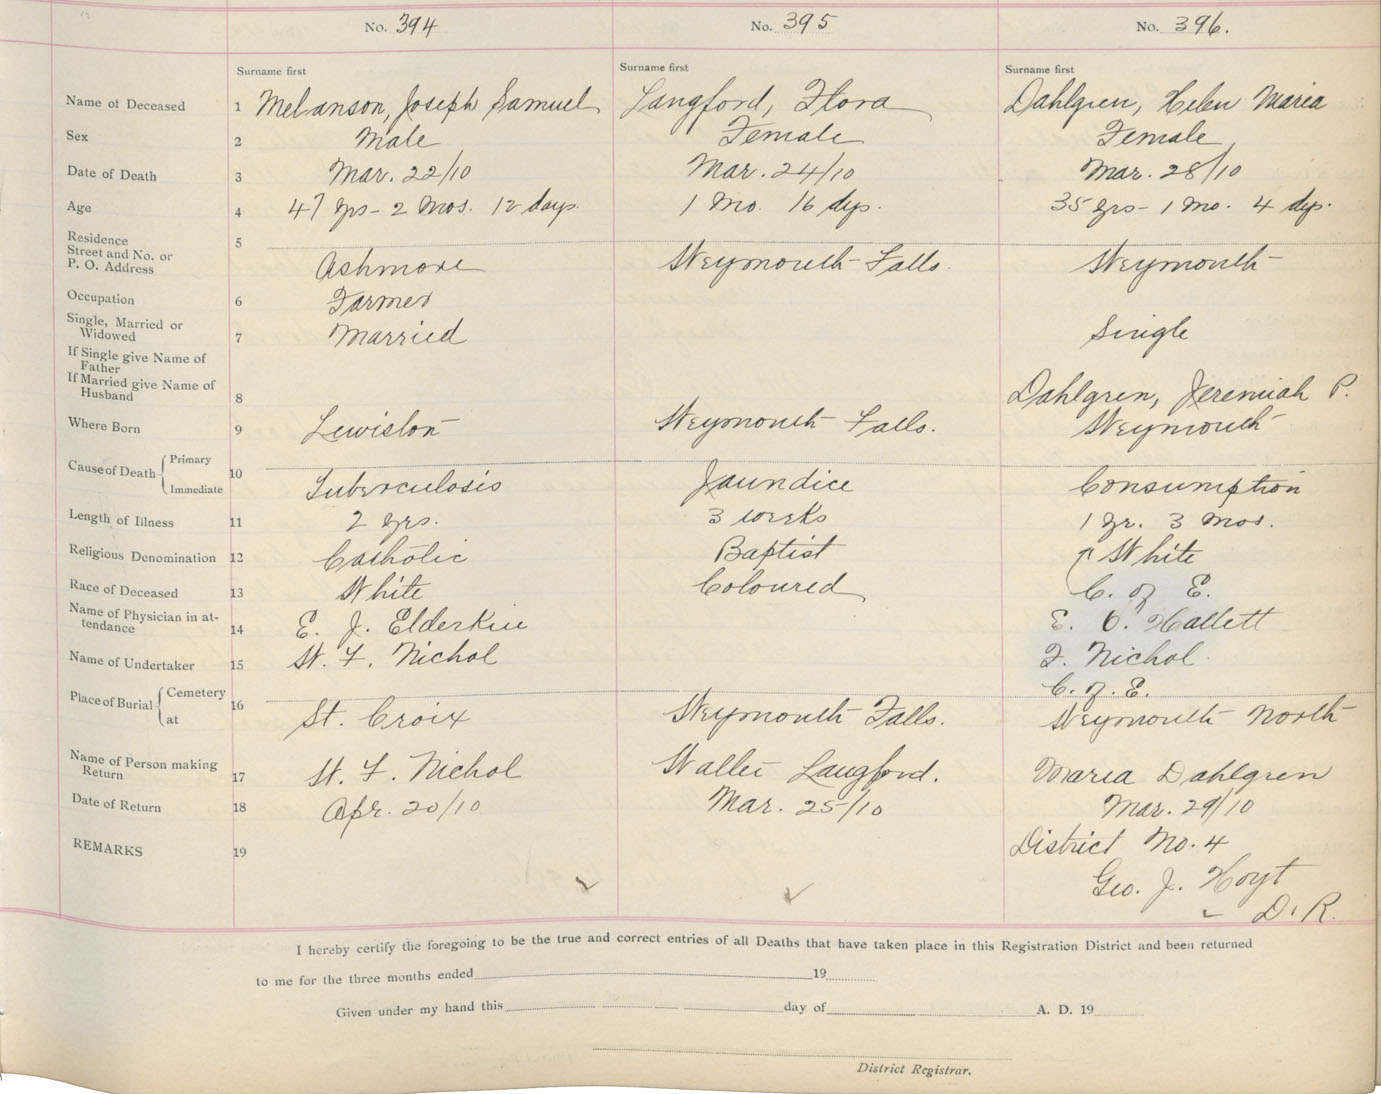 No. 394 No. 395 No. 396.
Surname first Surname first Surname first
Name of Deceased 1 Melanson, Joseph Samuel Langford, Flora Dahlgren, Helen Maria
Sex 2 Male Female Female
Date of Death 3 Mar. 22/10 Mar. 24/10 Mar. 28/10
Age 4 47 yrs - 2 mos. 12 days. 1 Mo. 16 dys. 35 yrs - 1 mo. 4 dys.
Residence 5
Street and No. or
P. O. Address Ashmore Weymouth Falls. Weymouth
Occupation 6 Farmer
Single, Married or
Widowed 7 Married Single
If Single give Name of
Father
If Married give Name of
Husband 8 Dahlgren, Jeremiah P.
Where Born 9 Lewiston Weymouth Falls. Weymouth
Cause of Death { Primary
Immediate 10 Tuberculosis Jaundice Consumption
Length of Illness 11 2 yrs. 3 weeks 1 yr. 3 mos.
Religious Denomination 12 Catholic Baptist White
Race of Deceased 13 White Coloured C. of E.
Name of Physician in at-
tendance 14 E. J. Elderkin E. C. Hallett
Name of Undertaker 15 W. F. Nichol F. Nichol
Place of Burial { Cemetery 16 C. of E.
at St. Croix Weymouth Falls. Weymouth North
Name of Person making
Return 17 W. F. Nichol Walter Langford. Maria Dahlgren
Date of Return 18 Apr. 20/10 Mar. 25/10 Mar. 29/10
REMARKS 19 District No. 4
Geo. J. Hoyt
D. R.
I hereby certify the foregoing to be the true and correct entries of all Deaths that have taken place in this Registration District and been returned
to me for the three months ended 19
Given under my hand this day of A. D. 19
District Registrar.